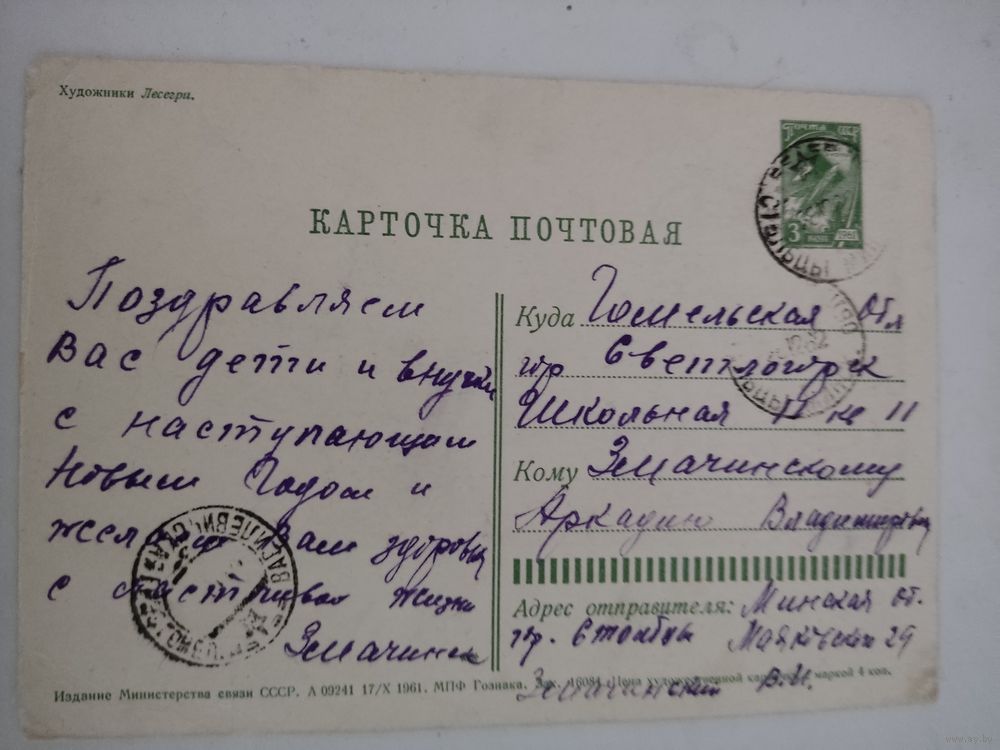 Художники Лесегри.
ПОЧТА СССР
3
1961
КАРТОЧКА ПОЧТОВАЯ
Поздравляем
Вас дети и внучки
с наступающим
Новым Годом и
желаем Вам здоровья
счастливой жизни
Змачинск
Куда Гомельская обл
гор Светлогорск
Школьная 11 кв 11
Кому Змачинскому
Аркадию Владимировичу
Адрес отправителя: Минская об.
гр. Столбцы Маяковская 29
Змачинский В.И.
Издание Министерства связи СССР. А 09241 17/X 1961. МПФ Гознака. Зак. 16084. Цена художественной карточки с маркой 4 коп.